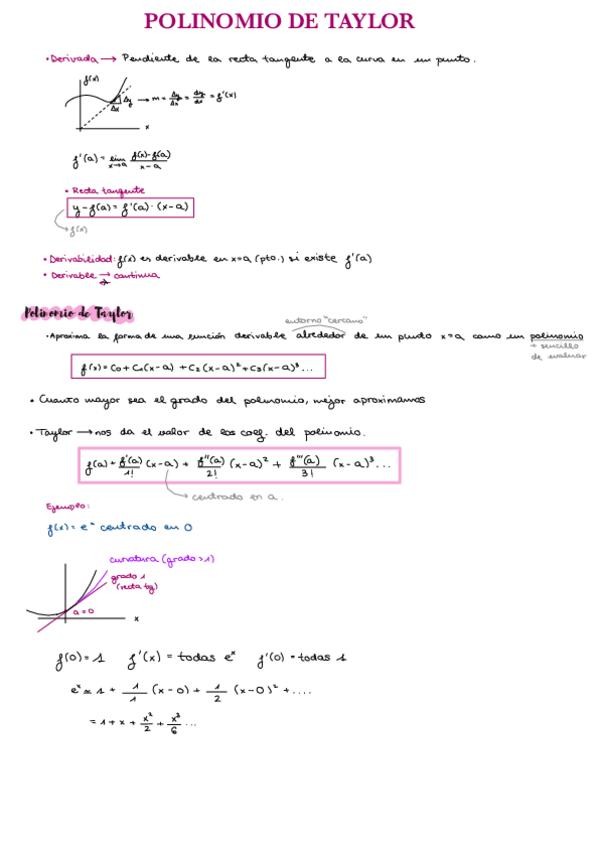 POLINOMIO DE TAYLOR
• Derivada → Pendiente de la recta tangente a la curva en un punto.
f(x)
Δy → m = Δy/Δx = dy/dx = f'(x)
Δx
x
f'(a) = lim x→a (f(x)-f(a))/(x-a)
• Recta tangente
y - f(a) = f'(a) · (x-a)
f(x)
• Derivabilidad: f(x) es derivable en x=a (pto.) si existe f'(a)
• Derivable → continua
Polinomio de Taylor
entorno "cercano"
• Aproxima la forma de una función derivable alrededor de un punto x=a como un polinomio
+ sencillo
de evaluar
f(x) = C0 + C1(x-a) + C2(x-a)² + C3(x-a)³ ...
• Cuanto mayor sea el grado del polinomio, mejor aproximamos
• Taylor → nos da el valor de los coef. del polinomio.
f(a) + f'(a)/1! (x-a) + f''(a)/2! (x-a)² + f'''(a)/3! (x-a)³ ...
centrado en a.
Ejemplo:
f(x) = eˣ centrado en 0
curvatura (grado >1)
grado 1
(recta tg)
a=0
x
f(0) = 1 f'(x) = todas eˣ f'(0) = todas 1
eˣ ≃ 1 + 1/1 (x-0) + 1/2 (x-0)² + ....
= 1 + x + x²/2 + x³/6 ...